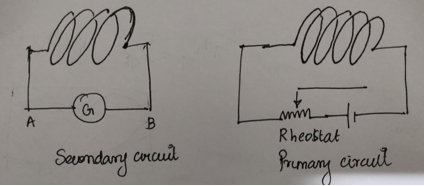 G
A B
Rheostat
Secondary circuit
Primary circuit